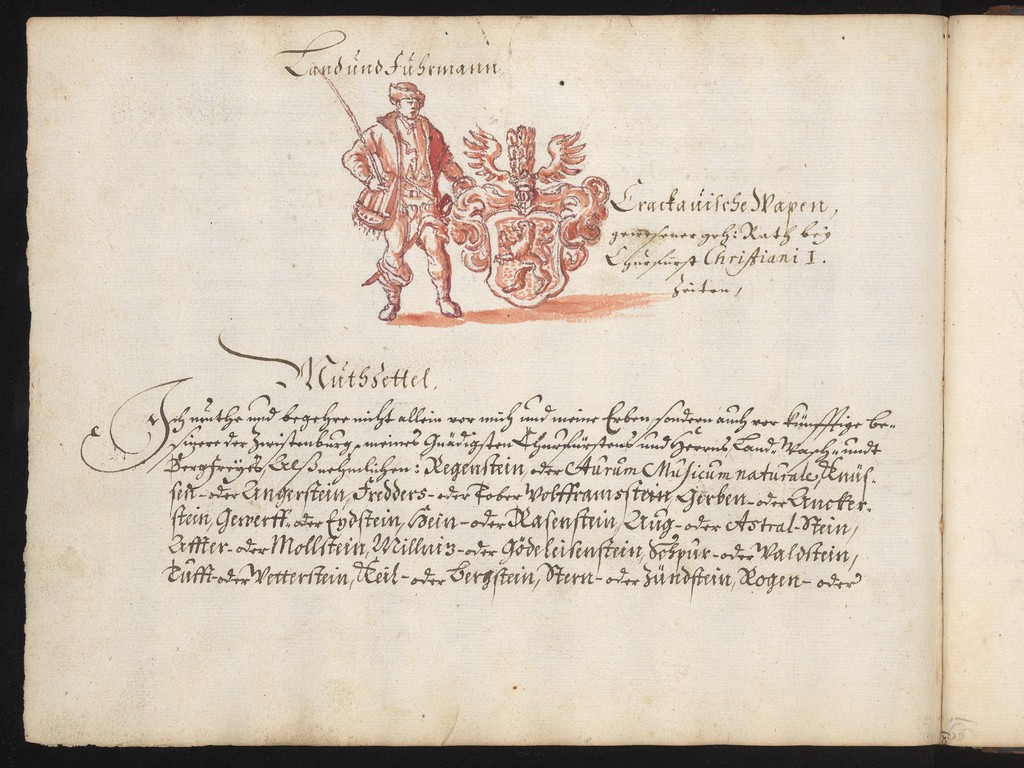 Land und Fuhrmann
Crackauische Wapen,
gewesener geh: Rath bey
Churfürst Christiani I.
Zeiten,
Muthzettel.
Ich muthe und begehre nicht allein vor mich und meine Erben sondern auch vor künfftige be-
sizere der meines Gnädigsten Churfürstens und Herrns Land- Wasch- undt
Bergfreyes Alß nehmlichen: Regenstein oder Aurum Musicum naturale, Knüs-
sen- oder Angerstein, Fredders- oder Tober Wolfframsstein, Gerben- oder Ancker-
stein, Gewerff- oder Eydstein, Hein- oder Rasenstein, Aug- oder Astral-Stein,
Affter- oder Mollstein, oder Gödeleisenstein, oder Waldstein,
Tufft- oder Wetterstein, Keil- oder Bergstein, Stern- oder Zündstein, Rogen- oder